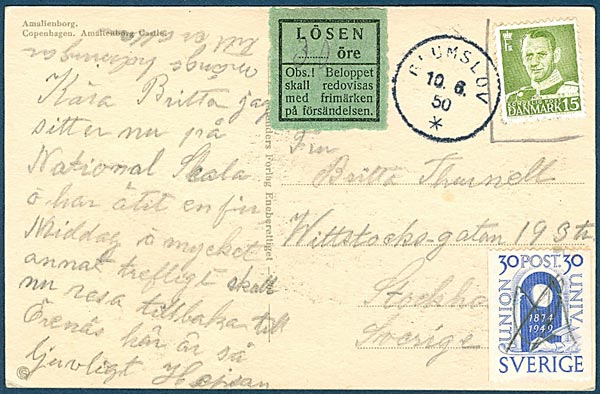 Amalienborg.
Copenhagen. Amalienborg Castle.
Kära Britta jag
sitter nu på
National Skala
o har ätit en fin
Middag o mycket
annat trefligt skall
nu resa tillbaka till
Örenäs här är så
ljuvligt
LÖSEN
30 öre
Obs.! Beloppet
skall redovisas
med frimärken
på försändelsen.
GLUMSLÖV
10. 6.
50
DANMARK 15
Eneberettiget
Fru
Britta Thunell
Wittstocksgatan 19 3 tr
Stockholm
Sverige
30 POST. 30
UNION
UNIV.
1874
1949
SVERIGE